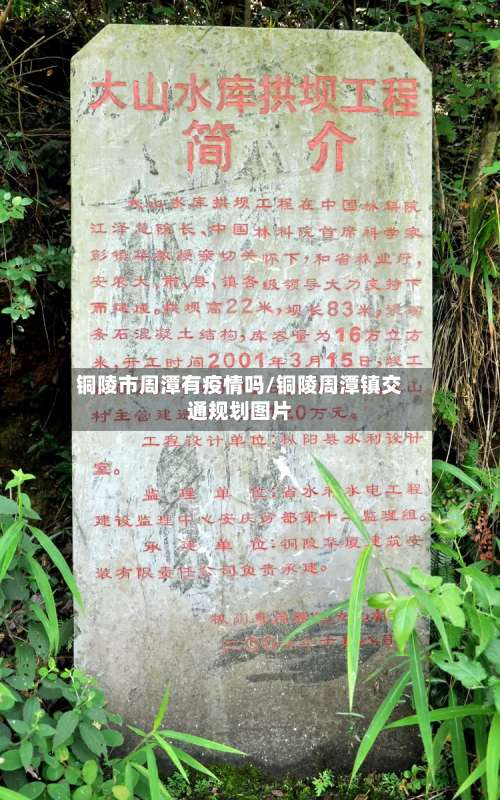 大山水库拱坝工程
简 介
大山水库拱坝工程在中国林科院
江泽慧院长、中国林科院首席科学家
彭镇华教授亲切关怀下,和省林业厅,
安庆大、市、县、镇各级领导大力支持下
而建设。拱坝高22米,坝长83米,
条石混凝土结构,库容量为16万立方
米,开工时间2001年3月15日,竣工
铜陵市周潭有疫情吗/铜陵周潭镇交
通规划图片
山
村主管建
0万元。
工程设计单位:枞阳县水利设计
室。
监 理 单 位:省水利水电工程
建设监理中心安庆分部第十二监理组。
承 建 单 位:铜陵华厦建筑安
装有限责任公司负责承建。
枞阳县
二00